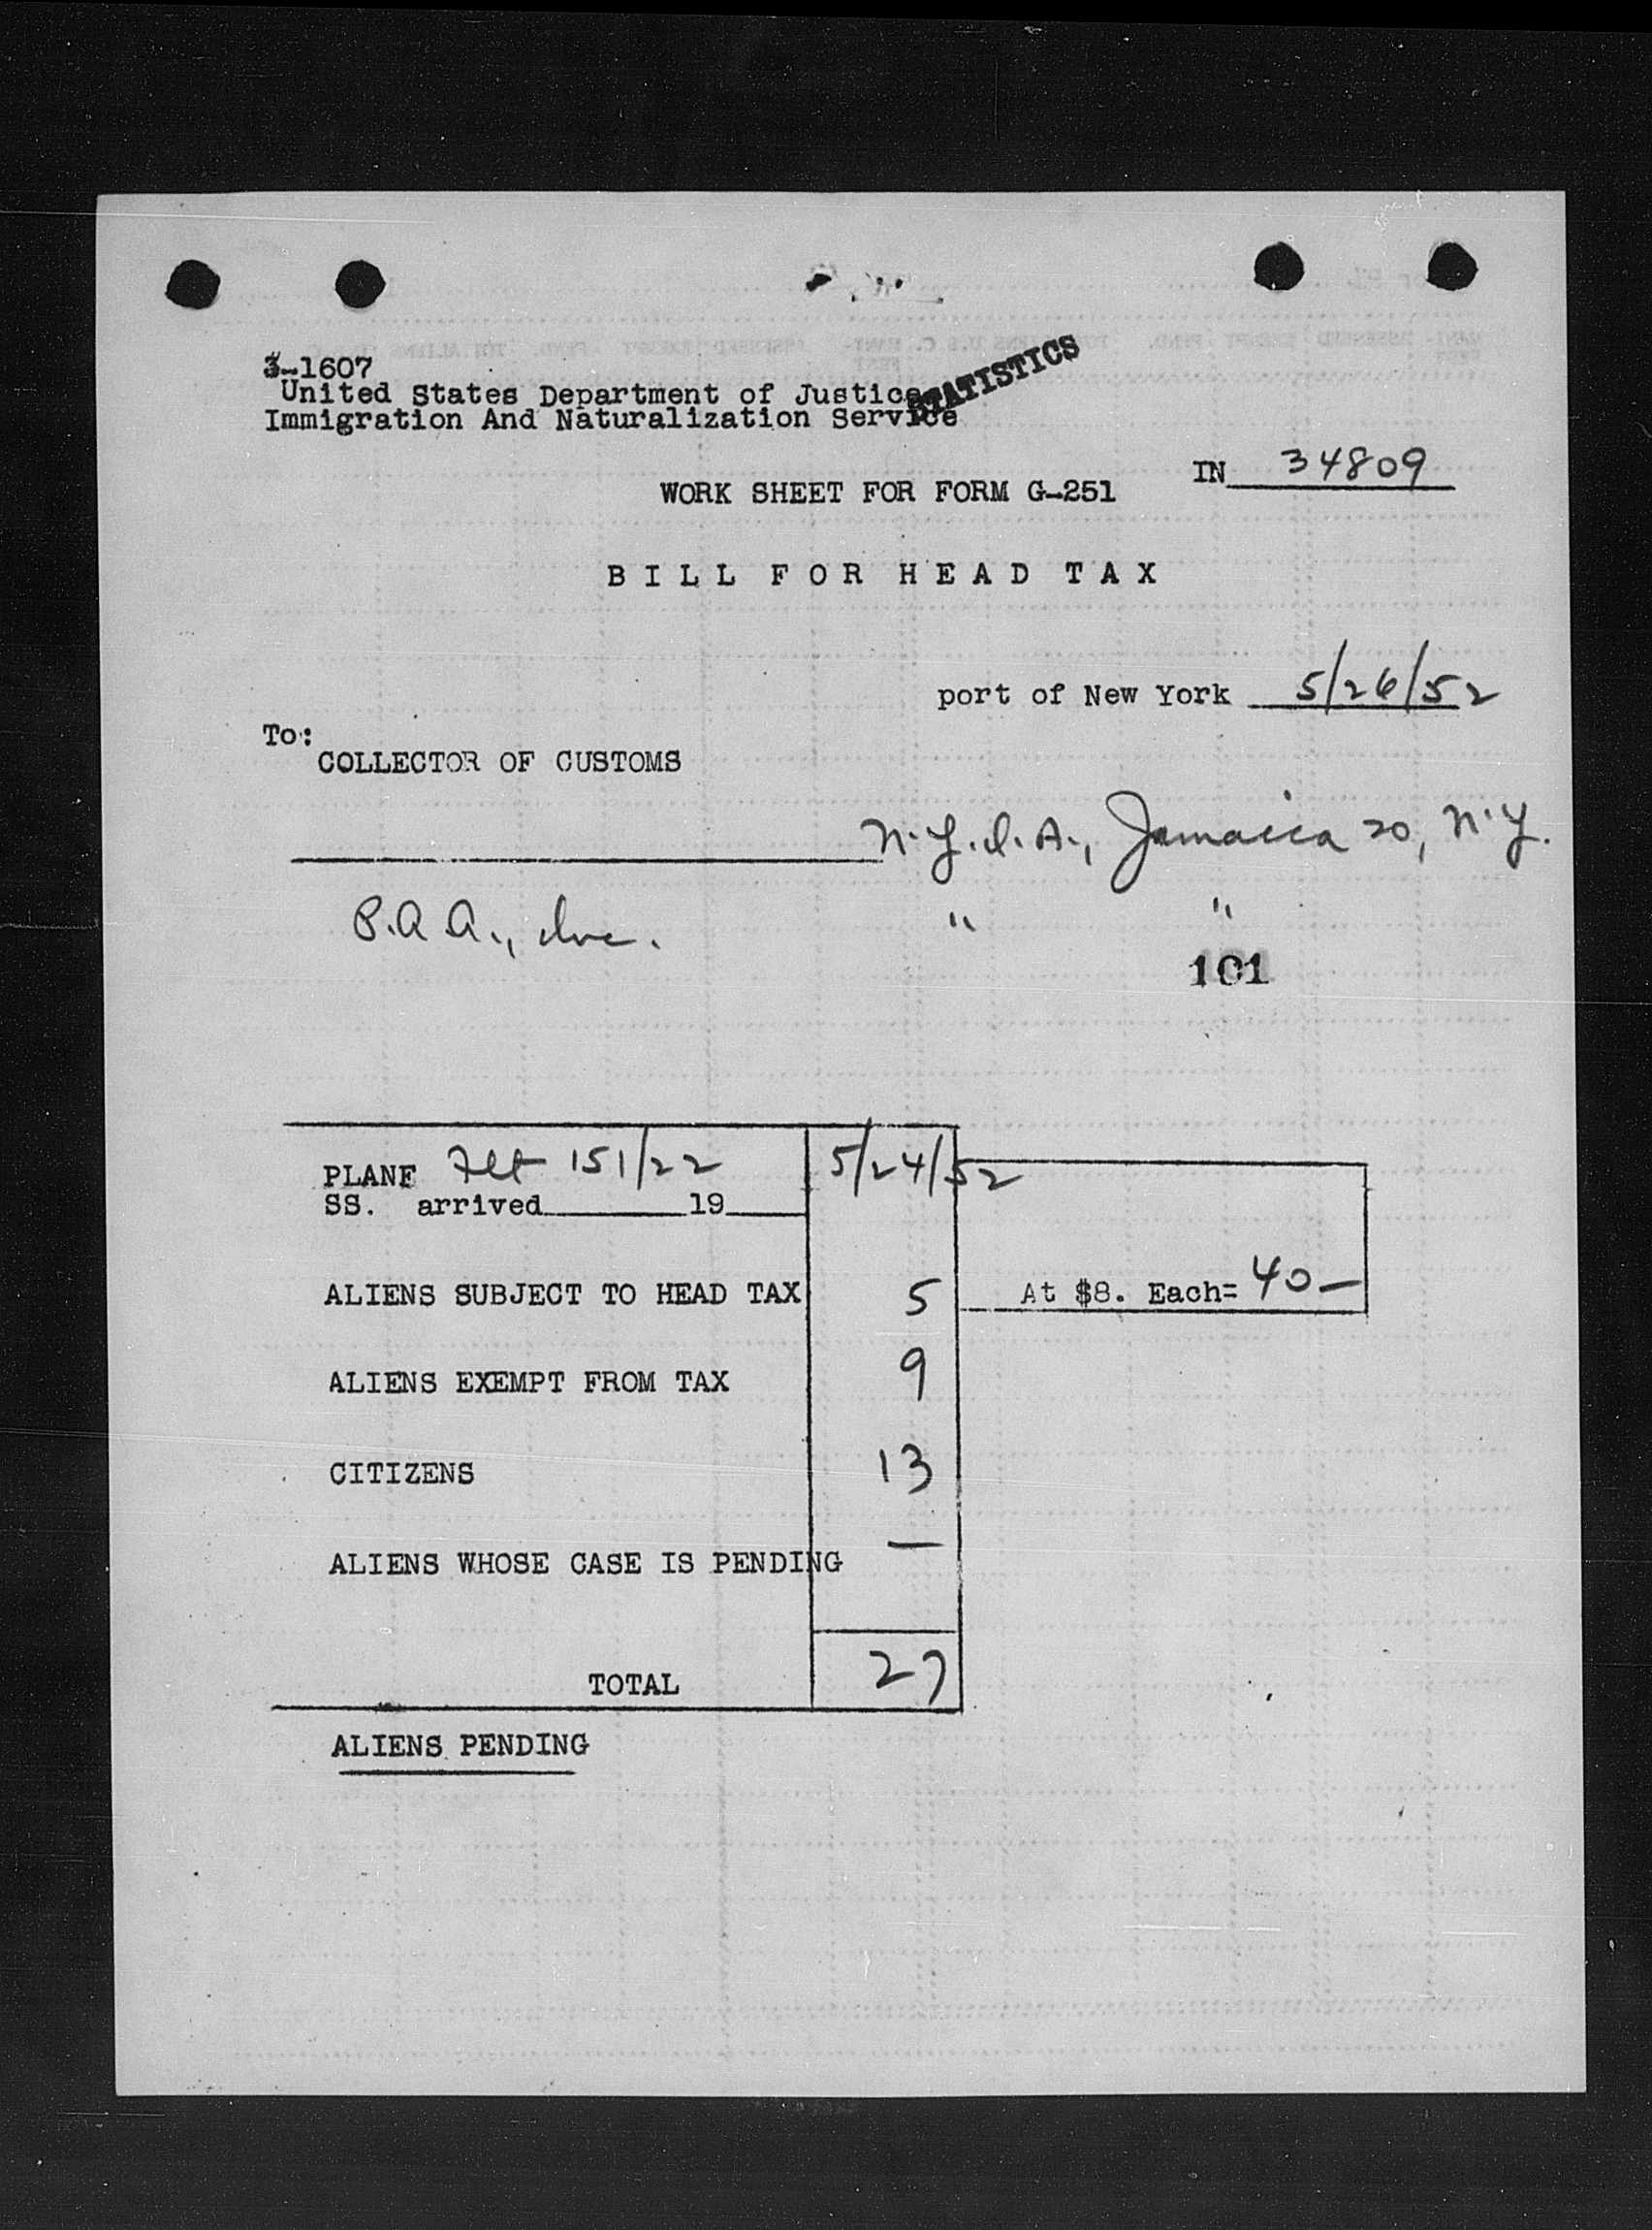 3-1607
United States Department of Justice
STATISTICS
Immigration And Naturalization Service
IN 34809
WORK SHEET FOR FORM G-251
BILL FOR HEAD TAX
port of New York 5/26/52
To:
COLLECTOR OF CUSTOMS
N.Y.I.A., Jamaica 20, N.Y.
P.A.A., Inc. " "
101
PLANE Flt 151/22 5/24/52
SS. arrived 19
ALIENS SUBJECT TO HEAD TAX 5 At $8. Each= 40—
ALIENS EXEMPT FROM TAX 9
CITIZENS 13
ALIENS WHOSE CASE IS PENDING —
TOTAL 27
ALIENS PENDING